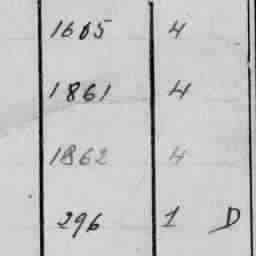 1605 4
1861 4
1862 4
296 1 D